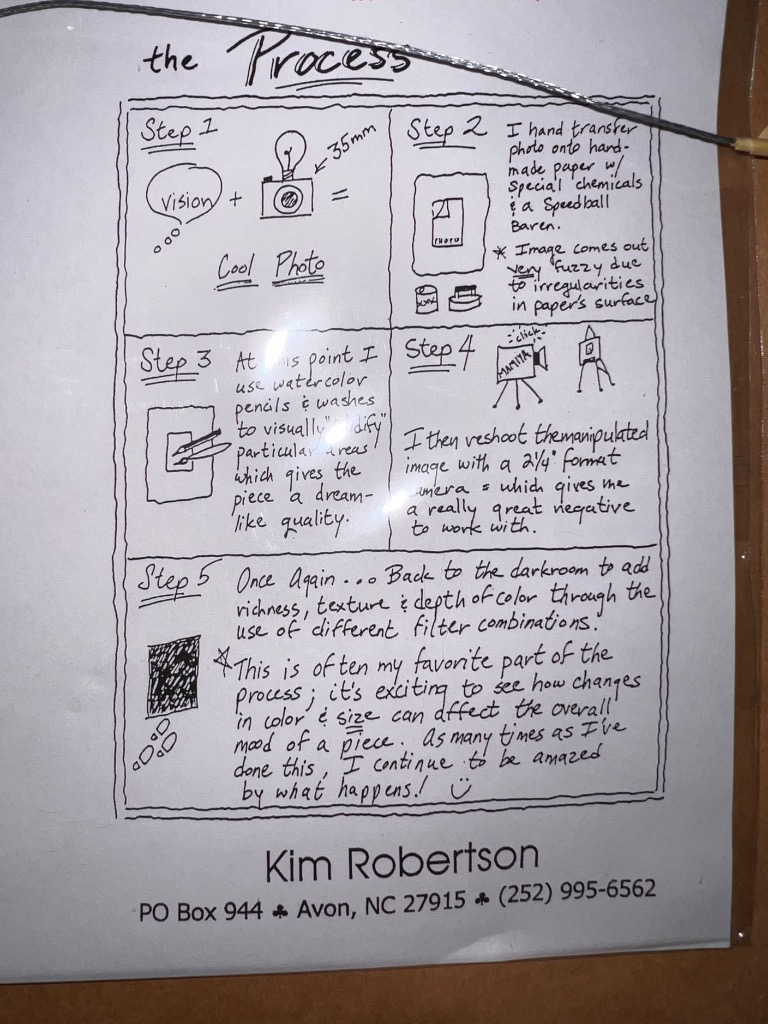 the Process
Step 1
vision
+
35mm
=
Cool Photo
Step 2
I hand transfer
photo onto hand-
made paper w/
special chemicals
& a Speedball
Baren.
* Image comes out
very fuzzy due
to irregularities
in paper's surface
PHOTO
Step 3
At this point I
use watercolor
pencils & washes
to visually
particular areas
which gives the
piece a dream-
like quality.
Step 4
click
MAMIYA
I then reshoot the manipulated
image with a 2 1/4" format
camera = which gives me
a really great negative
to work with.
Step 5
Once Again... Back to the darkroom to add
richness, texture & depth of color through the
use of different filter combinations.
☆ This is often my favorite part of the
process; it's exciting to see how changes
in color & size can affect the overall
mood of a piece. As many times as I've
done this, I continue to be amazed
by what happens! ☺
Kim Robertson
PO Box 944 ♣ Avon, NC 27915 ♣ (252) 995-6562